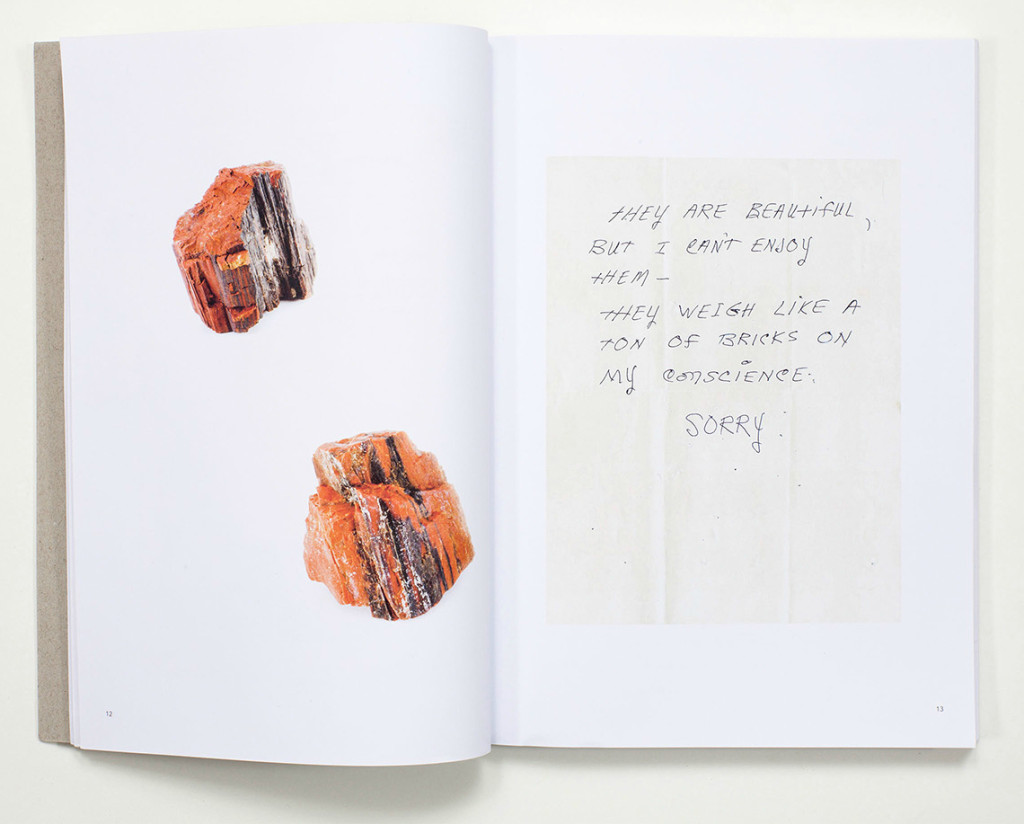 THEY ARE BEAUTIFUL,
BUT I CAN'T ENJOY
THEM —
THEY WEIGH LIKE A
TON OF BRICKS ON
MY CONSCIENCE.
SORRY.
12
13